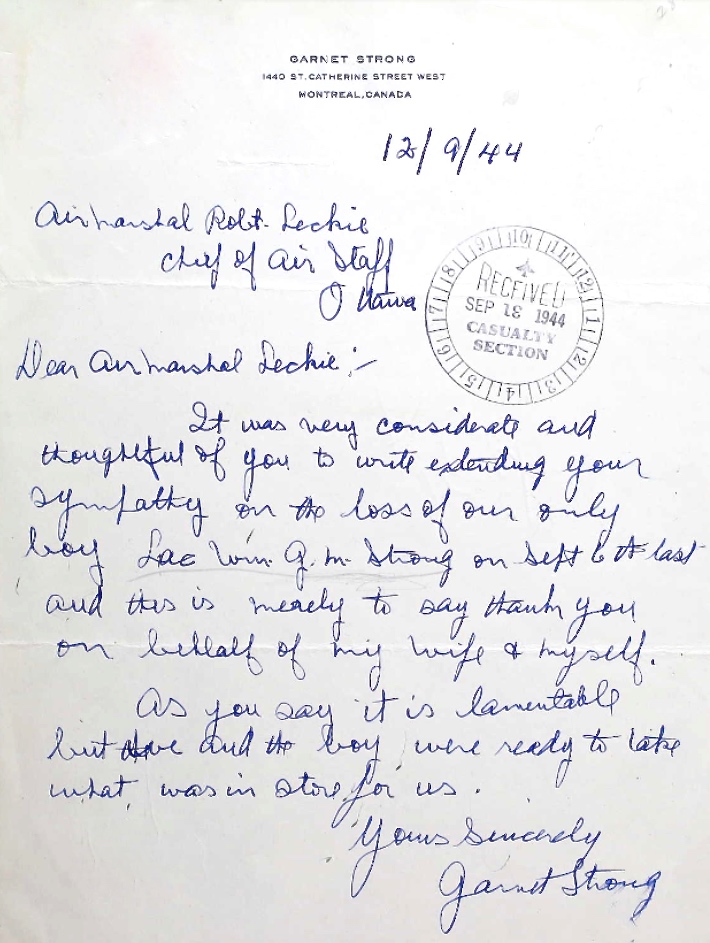 GARNET STRONG
1440 ST. CATHERINE STREET WEST
MONTREAL, CANADA
12/9/44
Airmarshal Robt. Leckie
Chief of Air Staff
Ottawa
RECEIVED
SEP 18 1944
CASUALTY
SECTION
9 10 11 12 1 2 3 4 5 6 7 8
Dear Airmarshal Leckie :-
It was very considerate and
thoughtful of you to write extending your
sympathy on the loss of our only
boy Lac Wm. G. M. Strong on Sept 6th last
and this is merely to say thank you
on behalf of my wife & myself.
As you say it is lamentable
but we and the boy were ready to take
what was in store for us.
Yours Sincerely
Garnet Strong